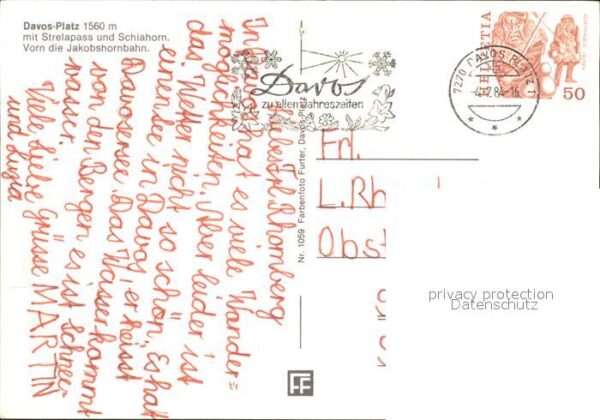 Davos-Platz 1560 m
mit Strelapass und Schiahorn.
Vorn die Jakobshornbahn.
Liebe Frl. Rhomberg
In Davos gibt es viele Wander=
möglichkeiten. Aber leider ist
das Wetter nicht so schön. Es hat
einen See in Davos, er heisst
Davosersee. Das Wasser kommt
von den Bergen es ist Schnee
wasser.
Viele liebe Grüsse MARTIN
und Luzia
Nr. 1059 Farbenfoto Furter, Davos-Platz
Davos
zu allen Jahreszeiten
7270 DAVOS PLATZ 1
84-16
HELVETIA
50
Frl.
L. Rh
Obst
privacy protection
Datenschutz
FF